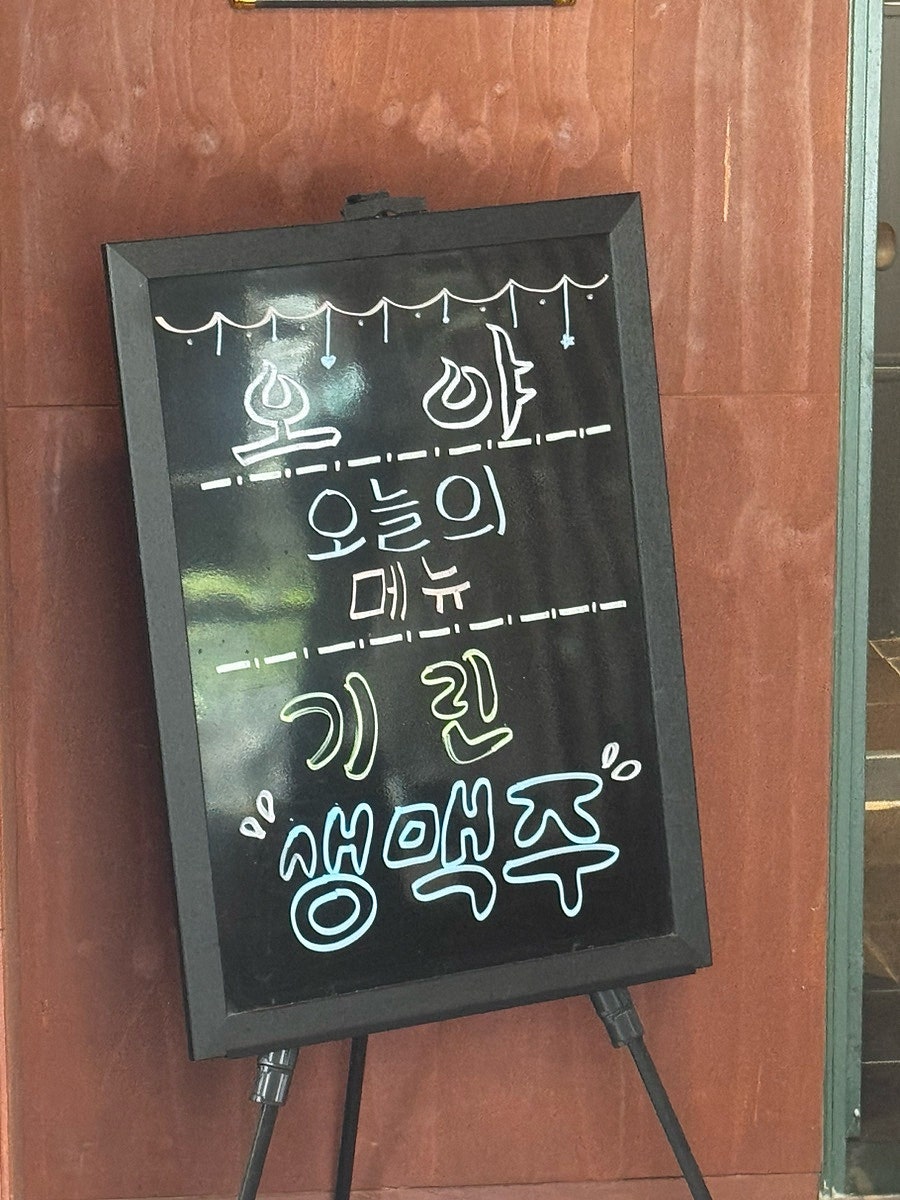 오 야
오늘의
메뉴
기 린
생맥주